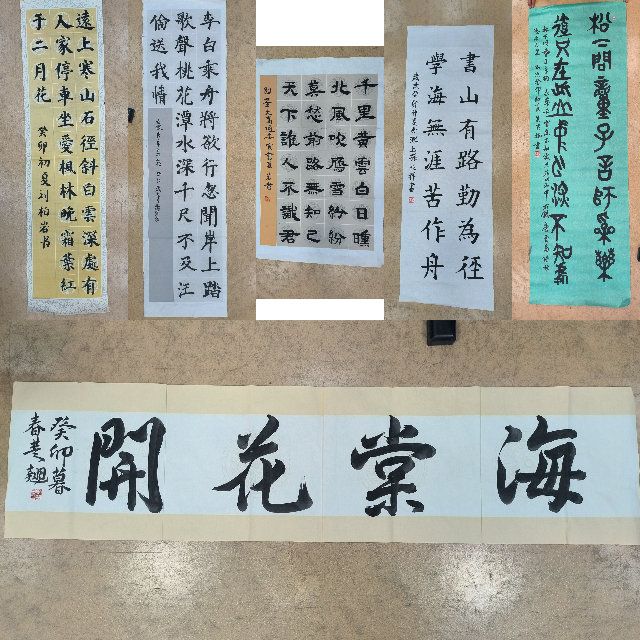 遠上寒山石徑斜白雲深處有
人家停車坐愛楓林晚霜葉紅
于二月花
癸卯初夏刘柏岩书
李白乘舟將欲行忽聞岸上踏
歌聲桃花潭水深千尺不及汪
倫送我情
千里黃雲白日曛
北風吹雁雪紛紛
莫愁前路無知己
天下誰人不識君
書山有路勤為徑
學海無涯苦作舟
松下問童子言師采藥
只在此山中
不知處
海棠花開
癸卯暮
春